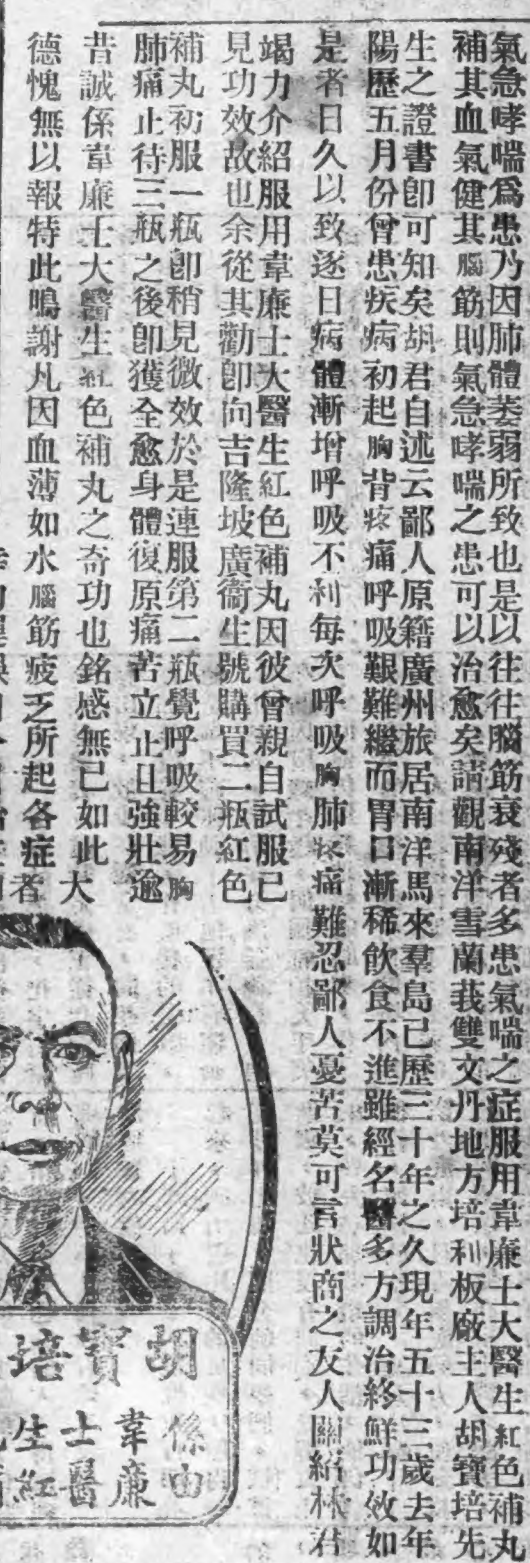 氣急哮喘爲患乃因肺體萎弱所致也是以往往腦筋衰殘者多患氣喘之症服用韋廉士大醫生紅色補丸
補其血氣健其腦筋則氣急哮喘之患可以治愈矣請觀南洋雪蘭莪雙文丹地方培利板廠主人胡寶培先
生之證書即可知矣胡君自述云鄙人原籍廣州旅居南洋馬來羣島已歷三十年之久現年五十三歲去年
陽歷五月份曾患疾病初起胸背疼痛呼吸艱難繼而胃口漸稀飲食不進雖經名醫多方調治終鮮功效如
是者日久以致逐日病體漸增呼吸不利每次呼吸胸肺疼痛難忍鄙人憂苦莫可言狀商之友人關紹林君
竭力介紹服用韋廉士大醫生紅色補丸因彼曾親自試服已
見功效故也余從其勸即向吉隆坡廣衞生號購買二瓶紅色
補丸初服一瓶即稍見微效於是連服第二瓶覺呼吸較易胸
肺痛止待三瓶之後即獲全愈身體復原痛苦立止且強壯逾
昔誠係韋廉士大醫生紅色補丸之奇功也銘感無已如此大
德愧無以報特此鳴謝凡因血薄如水腦筋疲乏所起各症者
胡寶培
係由
韋廉
士醫
生紅